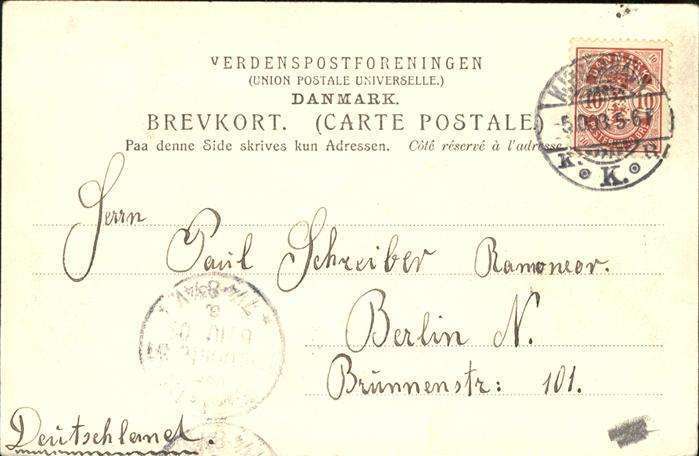 VERDENSPOSTFORENINGEN
(UNION POSTALE UNIVERSELLE.)
DANMARK.
BREVKORT. (CARTE POSTALE.)
Paa denne Side skrives kun Adressen. Côté réservé à l'adresse
10 10
5-6
K.
Herrn
Paul Schreiber
Berlin N.
Brunnenstr: 101.
Deutschland.